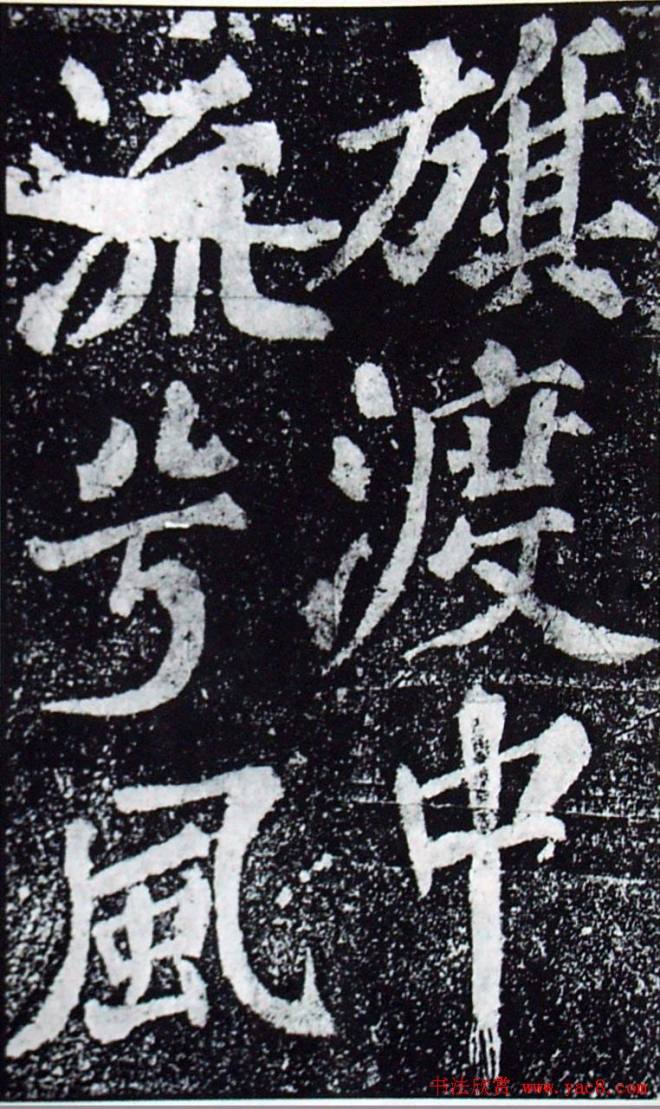 旗渡中
流兮風
书法欣赏 www.yac8.com